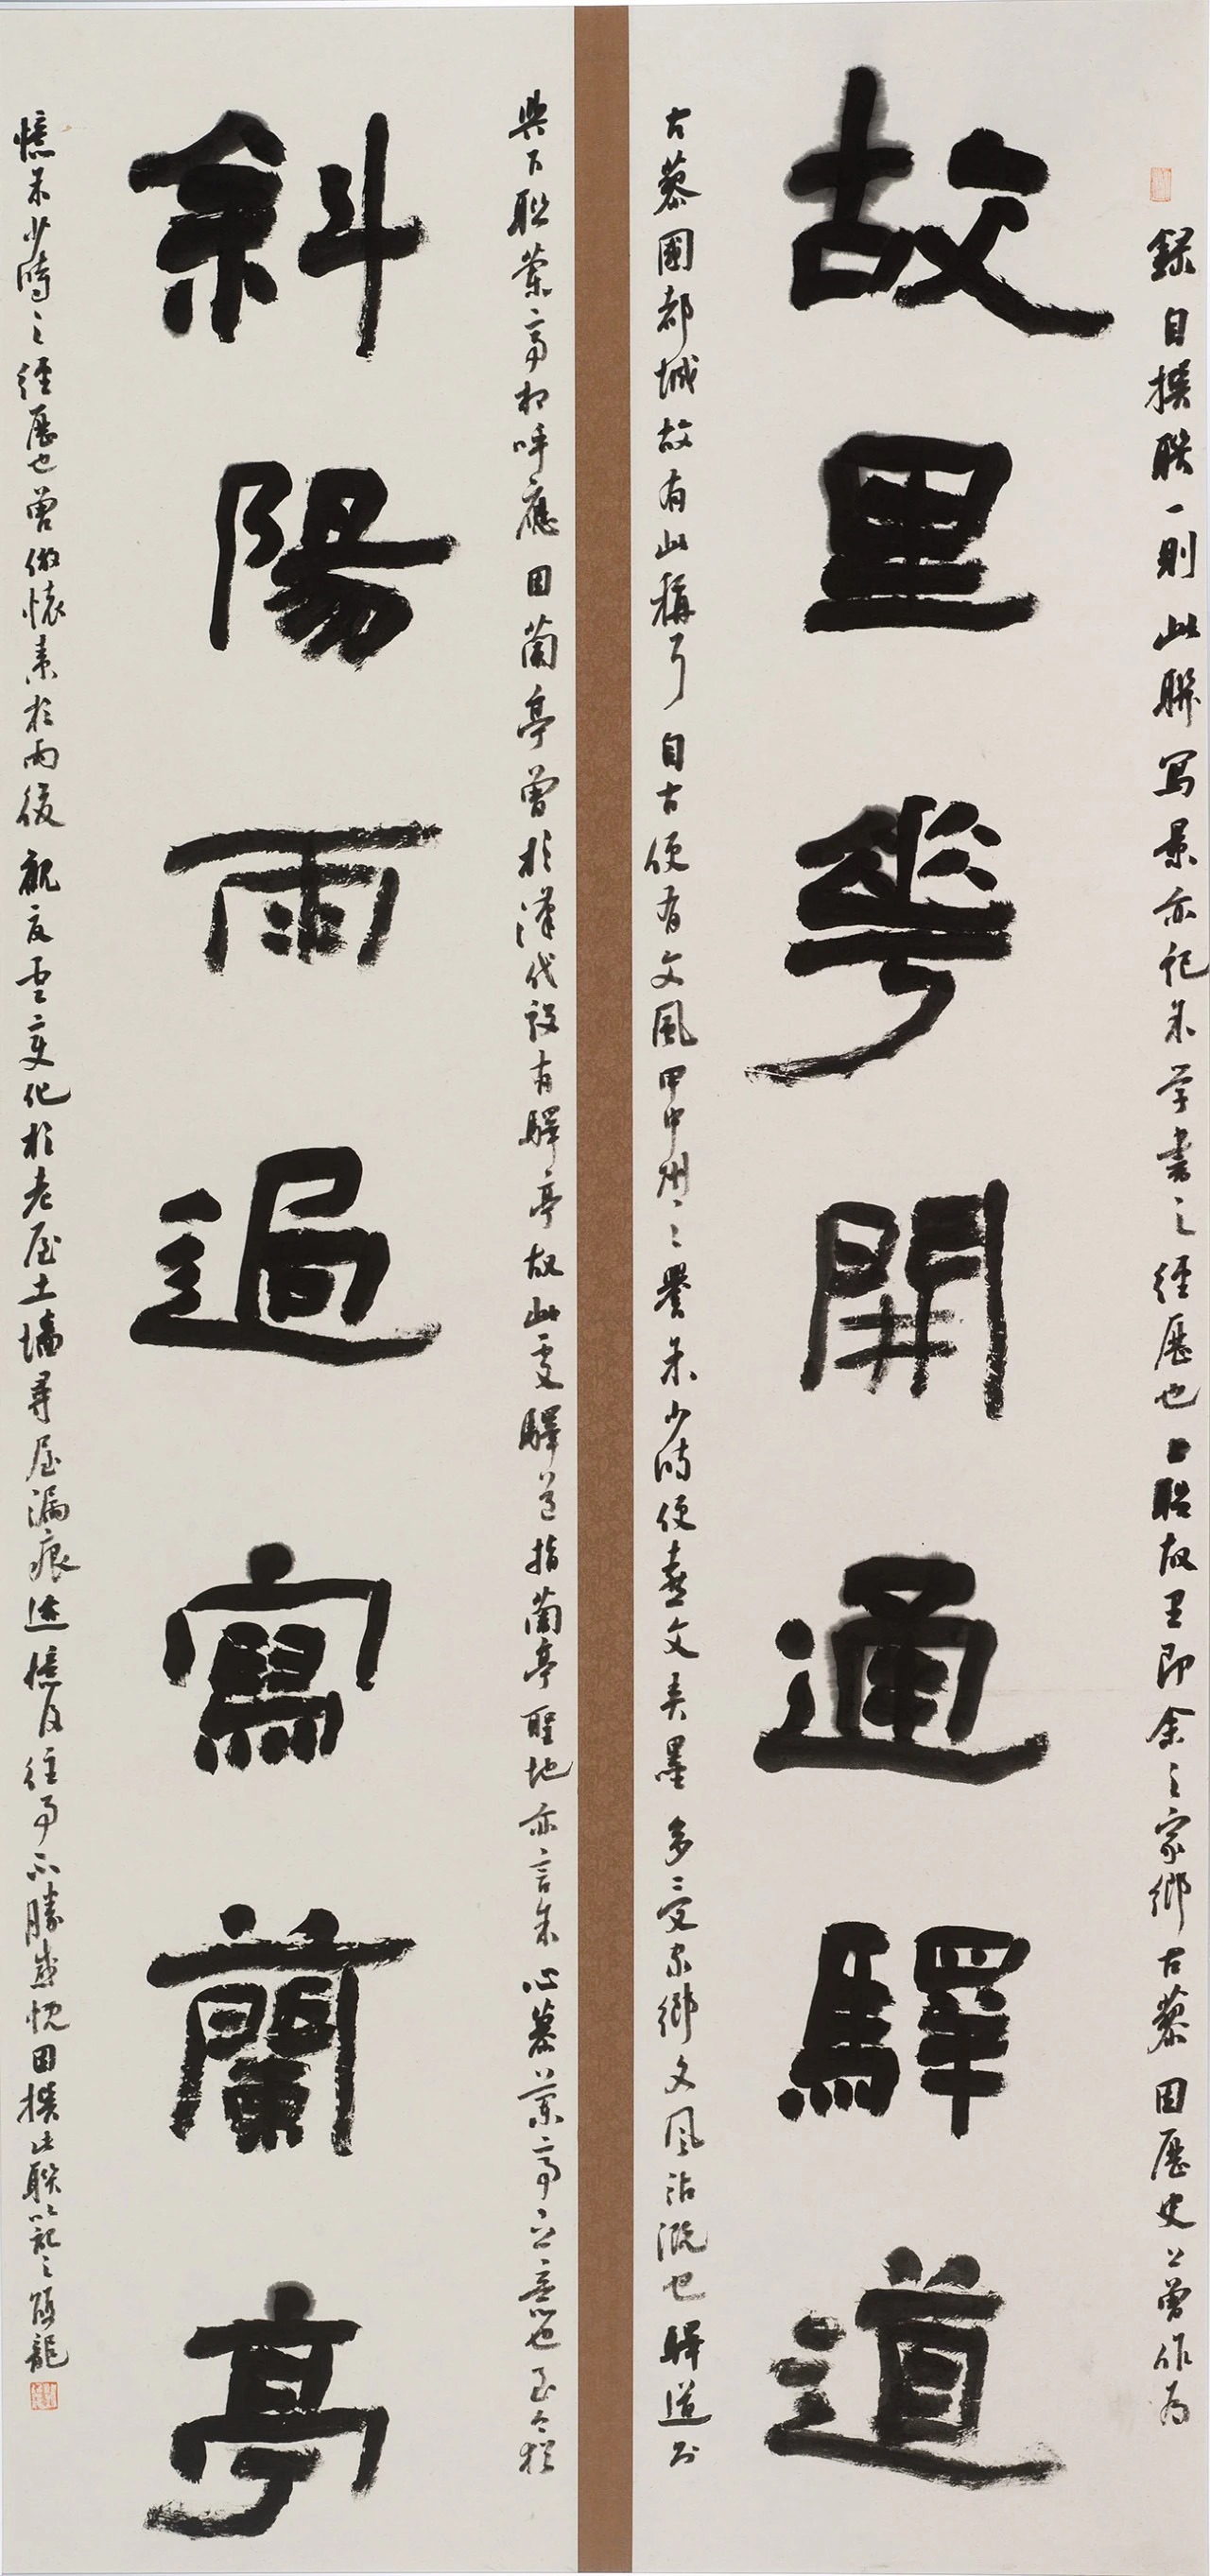 錄自撰联一則此聯寫景亦記余学書之經歷也上联故里即余之家鄉古蔡因歷史上曾作为
故里花開通驛道
古蔡國都城故有此稱耳自古便有文風甲中州之譽余少時便喜文弄墨多受家鄉文風沾溉也驛道则
與下联蘭亭相呼應因蘭亭曾於漢代設有驛亭故此處驛道指蘭亭聖地亦言余心慕蘭亭之意也至今猶
斜陽雨過寫蘭亭
憶余少時之經歷也曾倣懷素於雨後觀夏雲變化於老屋土墙尋屋漏痕迹憶及往事不勝感慨因撰此联以記之 龍